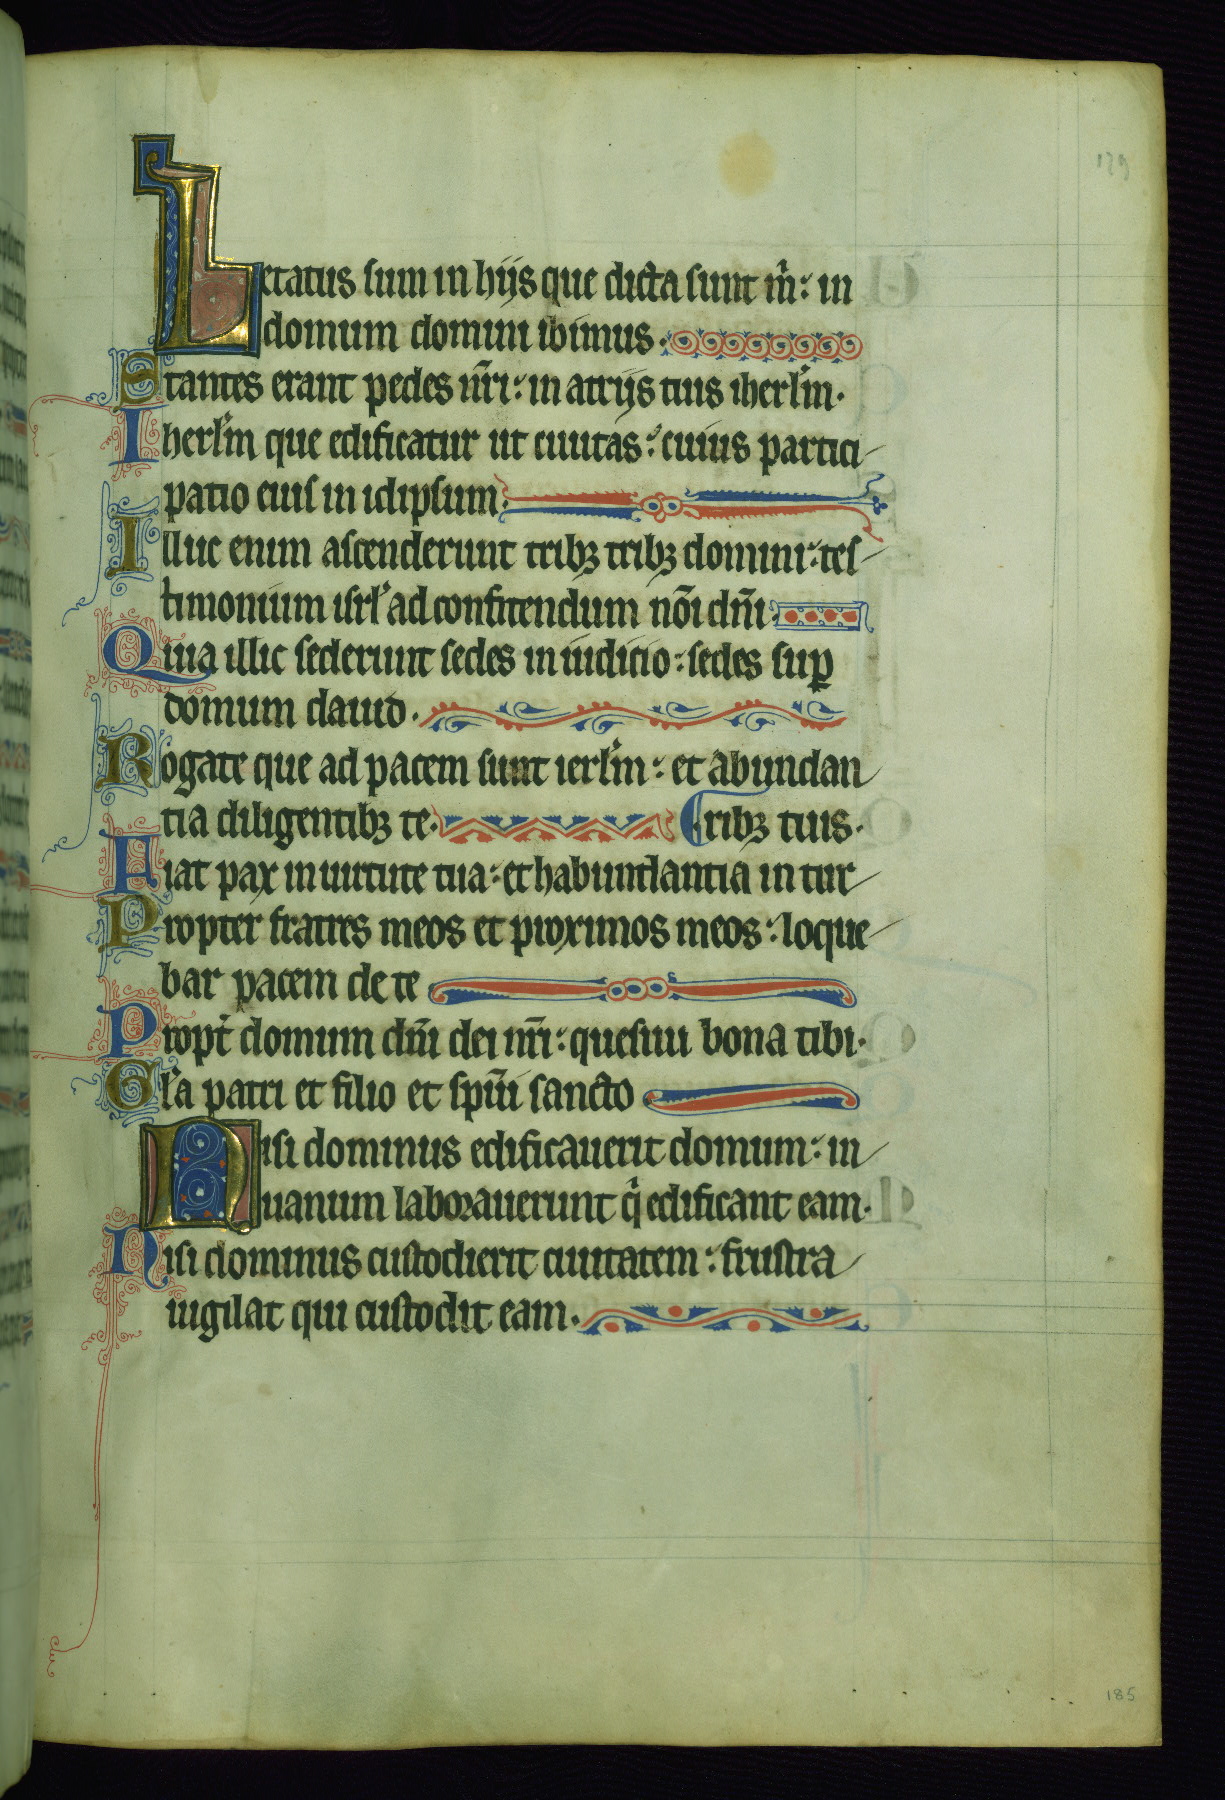 139
Letatus sum in hijs que dicta sunt m̄: in
domum domini ibimus.
Stantes erant pedes nr̄i: in atrijs tuis iherl̄m.
Iherl̄m que edificatur ut ciuitas: cuius partici
patio eius in idipsum.
Illuc enim ascenderunt tribꝫ tribꝫ domini: tes
timonium isrl̄ ad confitendum nōi dn̄i.
Quia illic sederunt sedes in iudicio: sedes suꝑ
domum dauid.
Rogate que ad pacem sunt ierl̄m: et abundan
tia diligentibꝫ te.
Fiat pax in uirtute tua: et habundantia in tur
ribꝫ tuis.
Propter fratres meos et proximos meos: loque
bar pacem de te
Propt̄ domum dn̄i dei nr̄i: quesiui bona tibi.
Gl̄a patri et filio et spūi sancto
Nisi dominus edificauerit domum: in
uanum laborauerunt q̄ edificant eam.
Nisi dominus custodierit ciuitatem: frustra
uigilat qui custodit eam.
185